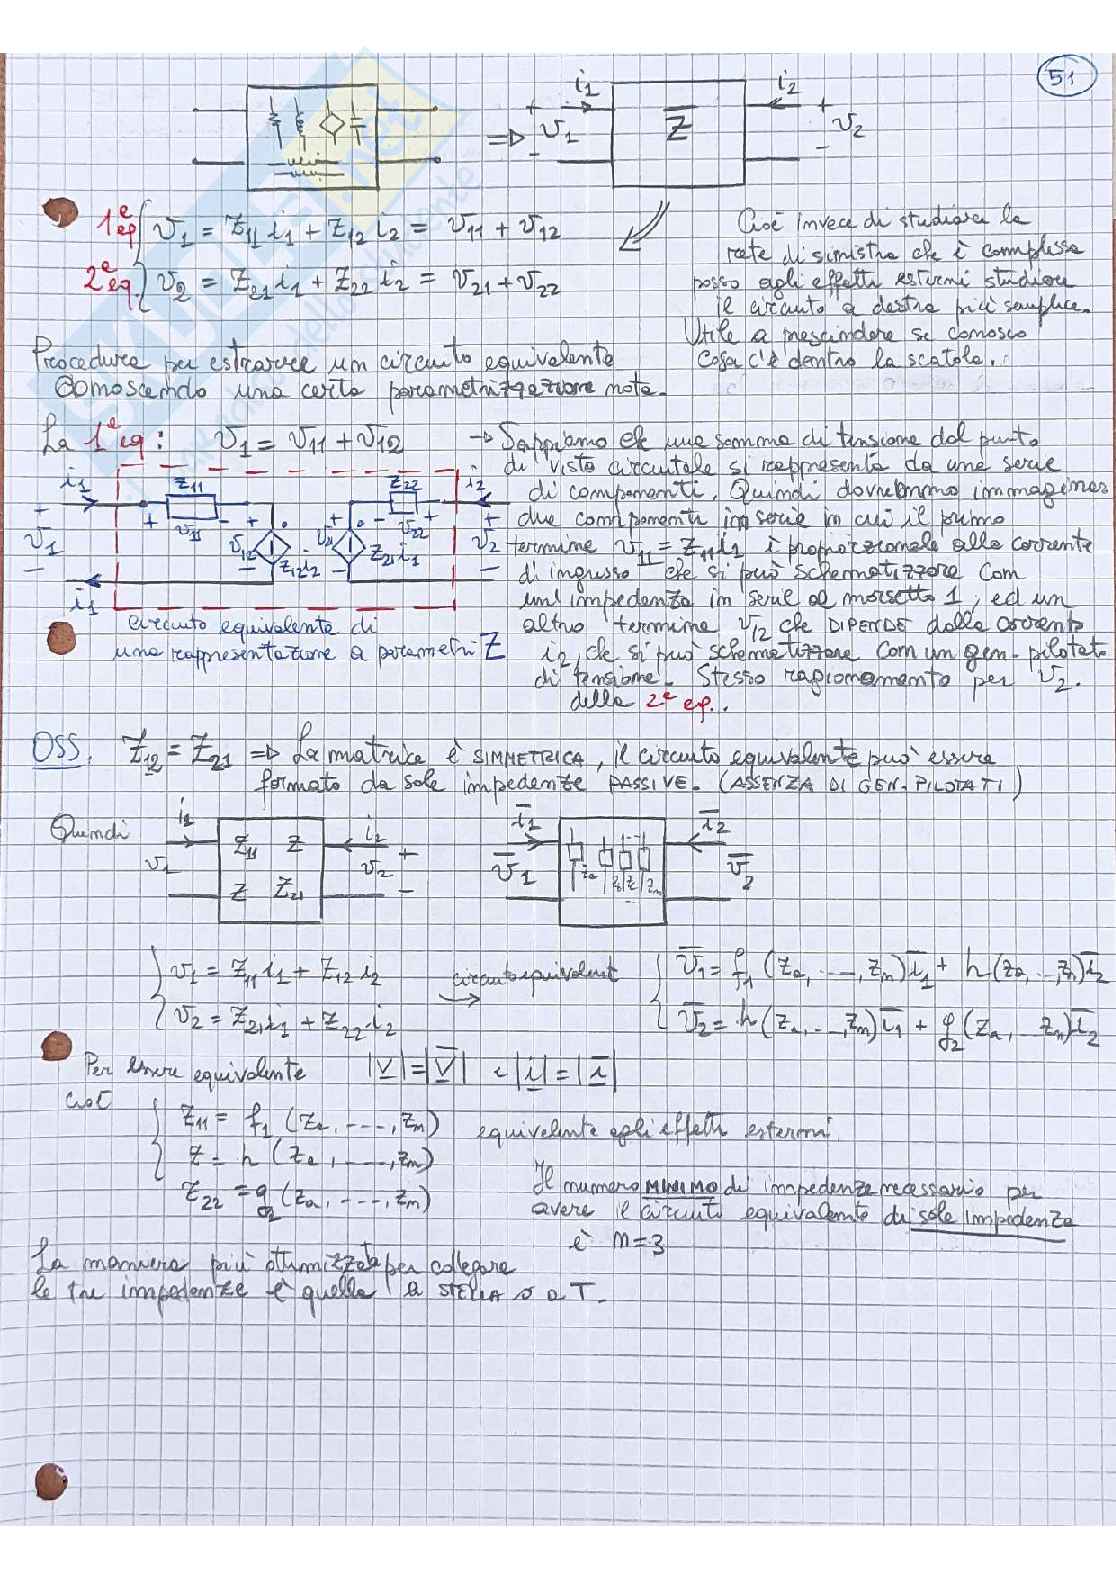 51
i1
v1
Z
i2
v2
1ª eq v1 = Z11 i1 + Z12 i2 = v11 + v12
2ª eq. v2 = Z21 i1 + Z22 i2 = v21 + v22
Cioè invece di studiare la
rete di sinistra che è complessa
posso agli effetti esterni studiare
il circuito a destra più semplice.
Utile a prescindere se conosco
cosa c'è dentro la scatola.
Procedura per estrarre un circuito equivalente
conoscendo una certa parametrizzazione nota.
La 1ª eq: v1 = v11 + v12 → Sappiamo che una somma di tensione dal punto
di vista circuitale si rappresenta da una serie
di componenti. Quindi dovremmo immaginare
due componenti in serie in cui il primo
termine v11 = Z11 i1 è proporzionale alla corrente
di ingresso che si può schematizzare con
un'impedenza in serie al morsetto 1, ed un
altro termine v12 che DIPENDE dalla corrente
i2, che si può schematizzare con un gen. pilotato
di tensione. Stesso ragionamento per v2.
della 2ª eq..
i1 Z11 Z22 i2
+ v11 - - v22 +
v1 v12 Z12 i2 v21 Z21 i1 v2
i1
circuito equivalente di
una rappresentazione a parametri Z
OSS. Z12 = Z21 ⇒ La matrice è SIMMETRICA, il circuito equivalente può essere
formato da sole impedenze PASSIVE. (ASSENZA DI GEN. PILOTATI)
Quindi
i1 Z11 Z i2
v1 Z Z21 v2
i1 i2
v1 Za Zm v2
v1 = Z11 i1 + Z12 i2
v2 = Z21 i1 + Z22 i2
circuito equivalent
v1 = f1 (Za, ..., Zm) i1 + h (Za, .., Zn) i2
v2 = h (Za, ..., Zm) i1 + g2 (Za, ... Zn) i2
Per essere equivalente |V| = |V| e |i| = |i|
cioè
Z11 = f1 (Za, ----, Zm) equivalente agli effetti esterni
Z = h (Za, ----, Zm)
Z22 = g2 (Za, ----, Zm)
Il numero MINIMO di impedenze necessario per
avere il circuito equivalente di sole impedenze
è m=3
La maniera più ottimizzata per collegare
le tre impedenze è quella a STELLA o a T.